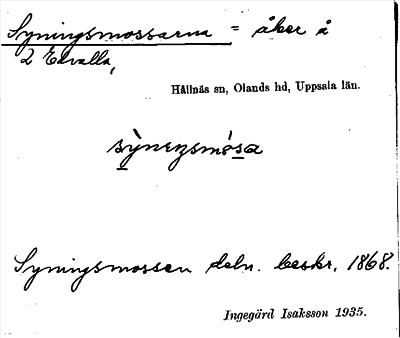 Syningsmossarna = åker å
2 Edvalla,
Hållnäs sn, Olands hd, Uppsala län.
sỳnɩŋsmò̀sa
Syningsmossen deln. beskr. 1868.
Ingegärd Isaksson 1935.